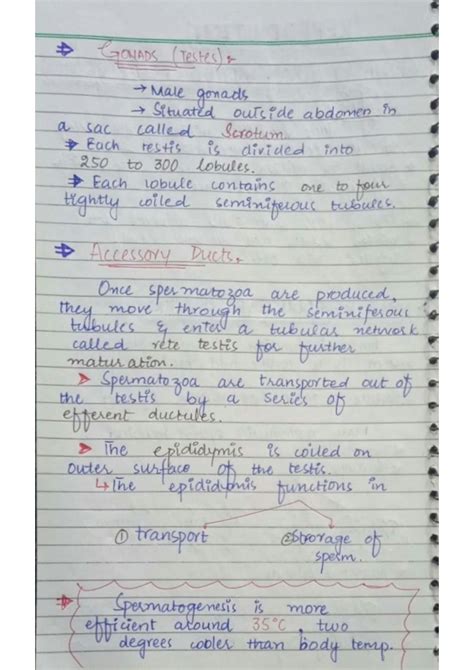 ⇒ GONADS (Testes),
→ Male gonads
→ Situated outside abdomen in
a sac called Scrotum
→ Each testis is divided into
250 to 300 lobules.
→ Each lobule contains one to four
tightly coiled seminiferous tubules.
⇒ Accessory Ducts,
Once spermatozoa are produced,
they move through the seminiferous
tubules & enter a tubular network
called rete testis for further
maturation.
➤ Spermatozoa are transported out of
the testis by a series of
efferent ductules.
➤ The epididymis is coiled on
outer surface of the testis.
↳ The epididymis functions in
① transport ② Strorage of
sperm.
⇒ Spermatogenesis is more
efficient around 35°C, two
degrees cooler than body temp.